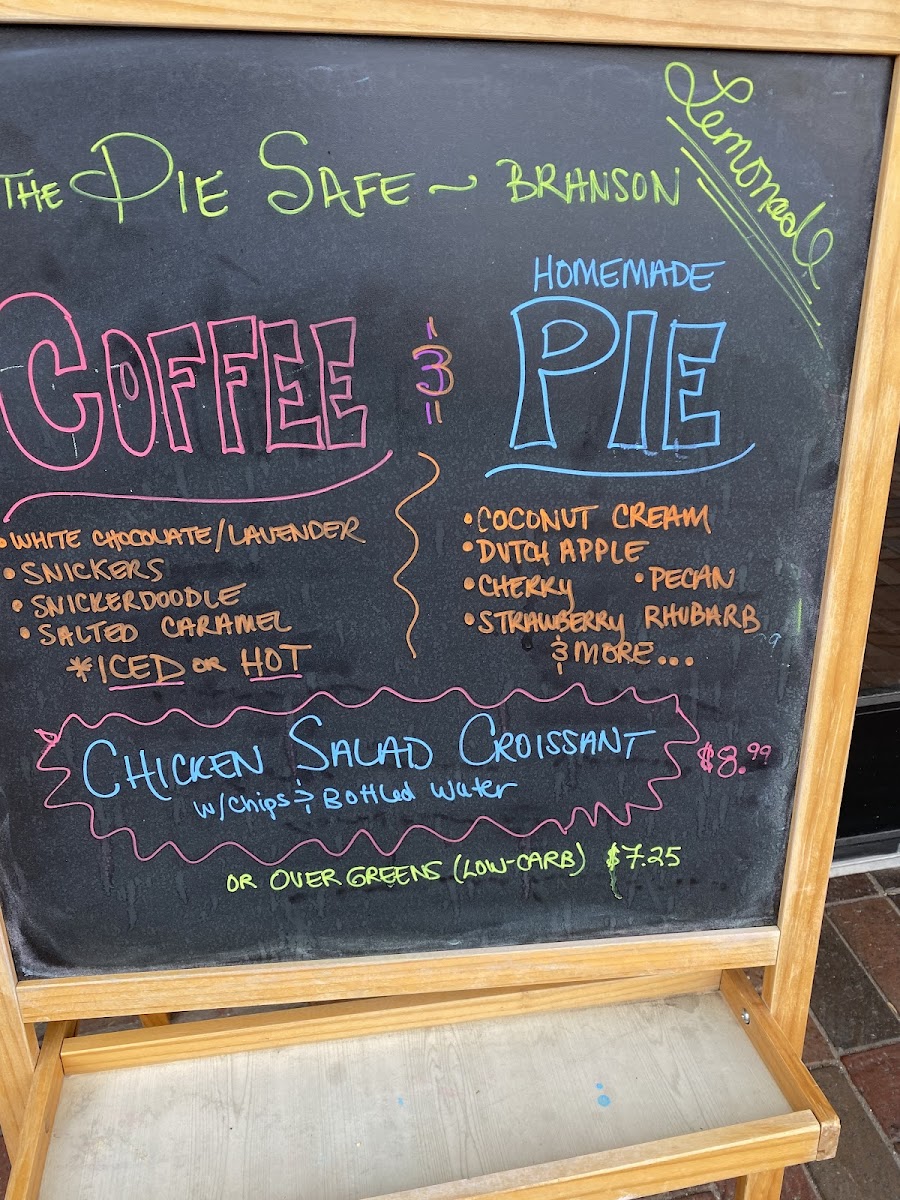 THE PIE SAFE ~ BRANSON
Lemonade
COFFEE & HOMEMADE PIE
• WHITE CHOCOLATE/LAVENDER
• SNICKERS
• SNICKERDOODLE
• SALTED CARAMEL
*ICED OR HOT
• COCONUT CREAM
• DUTCH APPLE
• CHERRY • PECAN
• STRAWBERRY RHUBARB
& MORE...
CHICKEN SALAD CROISSANT $8.99
w/chips & Bottled water
OR OVER GREENS (LOW-CARB) $7.25